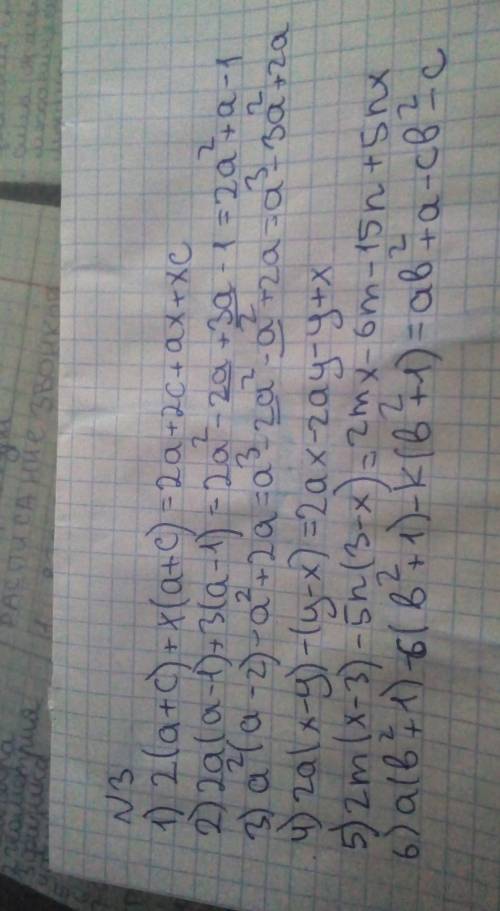 РАСПИСАНИЕ ЗВОНКОВ
№3
1) 2(a+c)+x(a+c)=2a+2c+ax+xc
2) 2a(a-1)+3(a-1)=2a²-2a+3a-1=2a²+a-1
3) a²(a-2)-a²+2a=a³-2a²-a²+2a=a³-3a²+2a
4) 2a(x-y)-(y-x)=2ax-2ay-y+x
5) 2m(x-3)-5n(3-x)=2mx-6m-15n+5nx
6) a(b²+1)-6(b²+1)-k(b²+1)=ab²+a-cb²-c